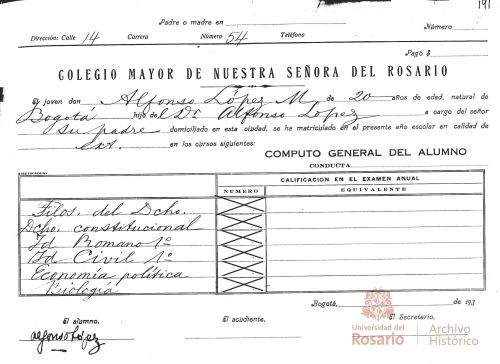 191
Padre o madre en
Número
Dirección: Calle 14 Carrera Número 54 Teléfono
Pagó $
COLEGIO MAYOR DE NUESTRA SEÑORA DEL ROSARIO
El joven don Alfonso López M. de 20 años de edad, natural de
Bogotá hijo del Dr Alfonso López a cargo del señor
su padre domiciliado en esta ciudad, se ha matriculado en el presente año escolar en calidad de
ext. en los cursos siguientes:
COMPUTO GENERAL DEL ALUMNO
CONDUCTA
CALIFICACION EN EL EXAMEN ANUAL
NUMERO EQUIVALENTE
Filos. del Dcho.
Dcho. constitucional
Id Romano 1º
Id Civil 1º
Economía política
Biología
Bogotá, de 193
El alumno, El acudiente, El Secretario,
Alfonso López
Universidad del Rosario
Archivo Histórico